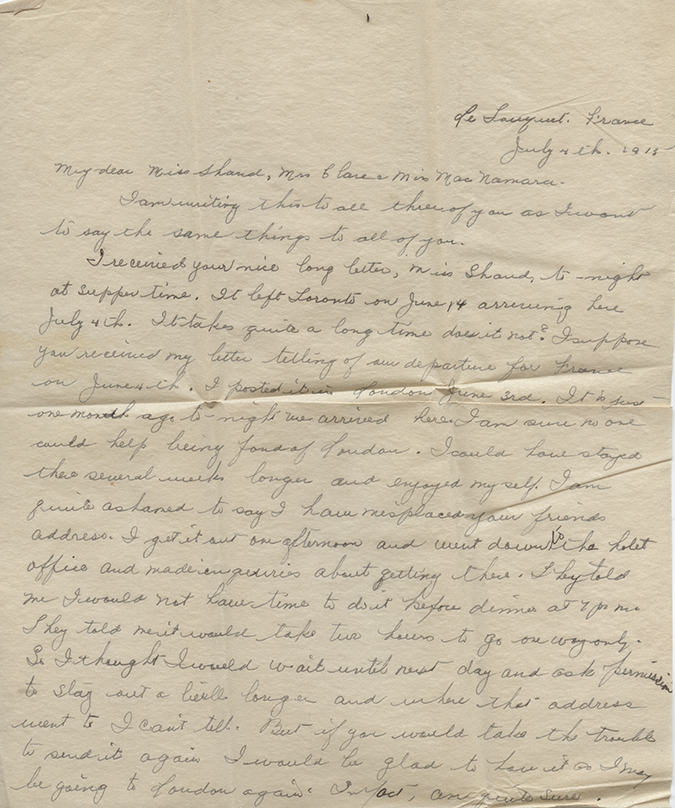 Le Touquet. France
July 4th. 1915
My dear Miss Shand, Mrs Clare & Miss MacNamara.
I am writing this to all three of you as I want
to say the same things to all of you.
I received your nice long letter, Miss Shand, to-night
at supper time. It left Toronto on June 14 arriving here
July 4th. It takes quite a long time does it not? I suppose
you received my letter telling of our departure for France
on June 4th. I posted it in London June 3rd. It is just
one month ago to-night we arrived here. I am sure no one
could help being fond of London. I could have stayed
there several weeks longer and enjoyed myself. I am
quite ashamed to say I have misplaced your friends
address. I got it out one afternoon and went down to the hotel
office and made enquiries about getting there. They told
me I would not have time to do it before dinner at 7 p.m.
They told me it would take two hours to go one way only.
So I thought I would wait until next day and ask permission
to stay out a little longer and where that address
went to I can't tell. But if you would take the trouble
to send it again I would be glad to have it as I may
be going to London again. In fact, am quite sure.